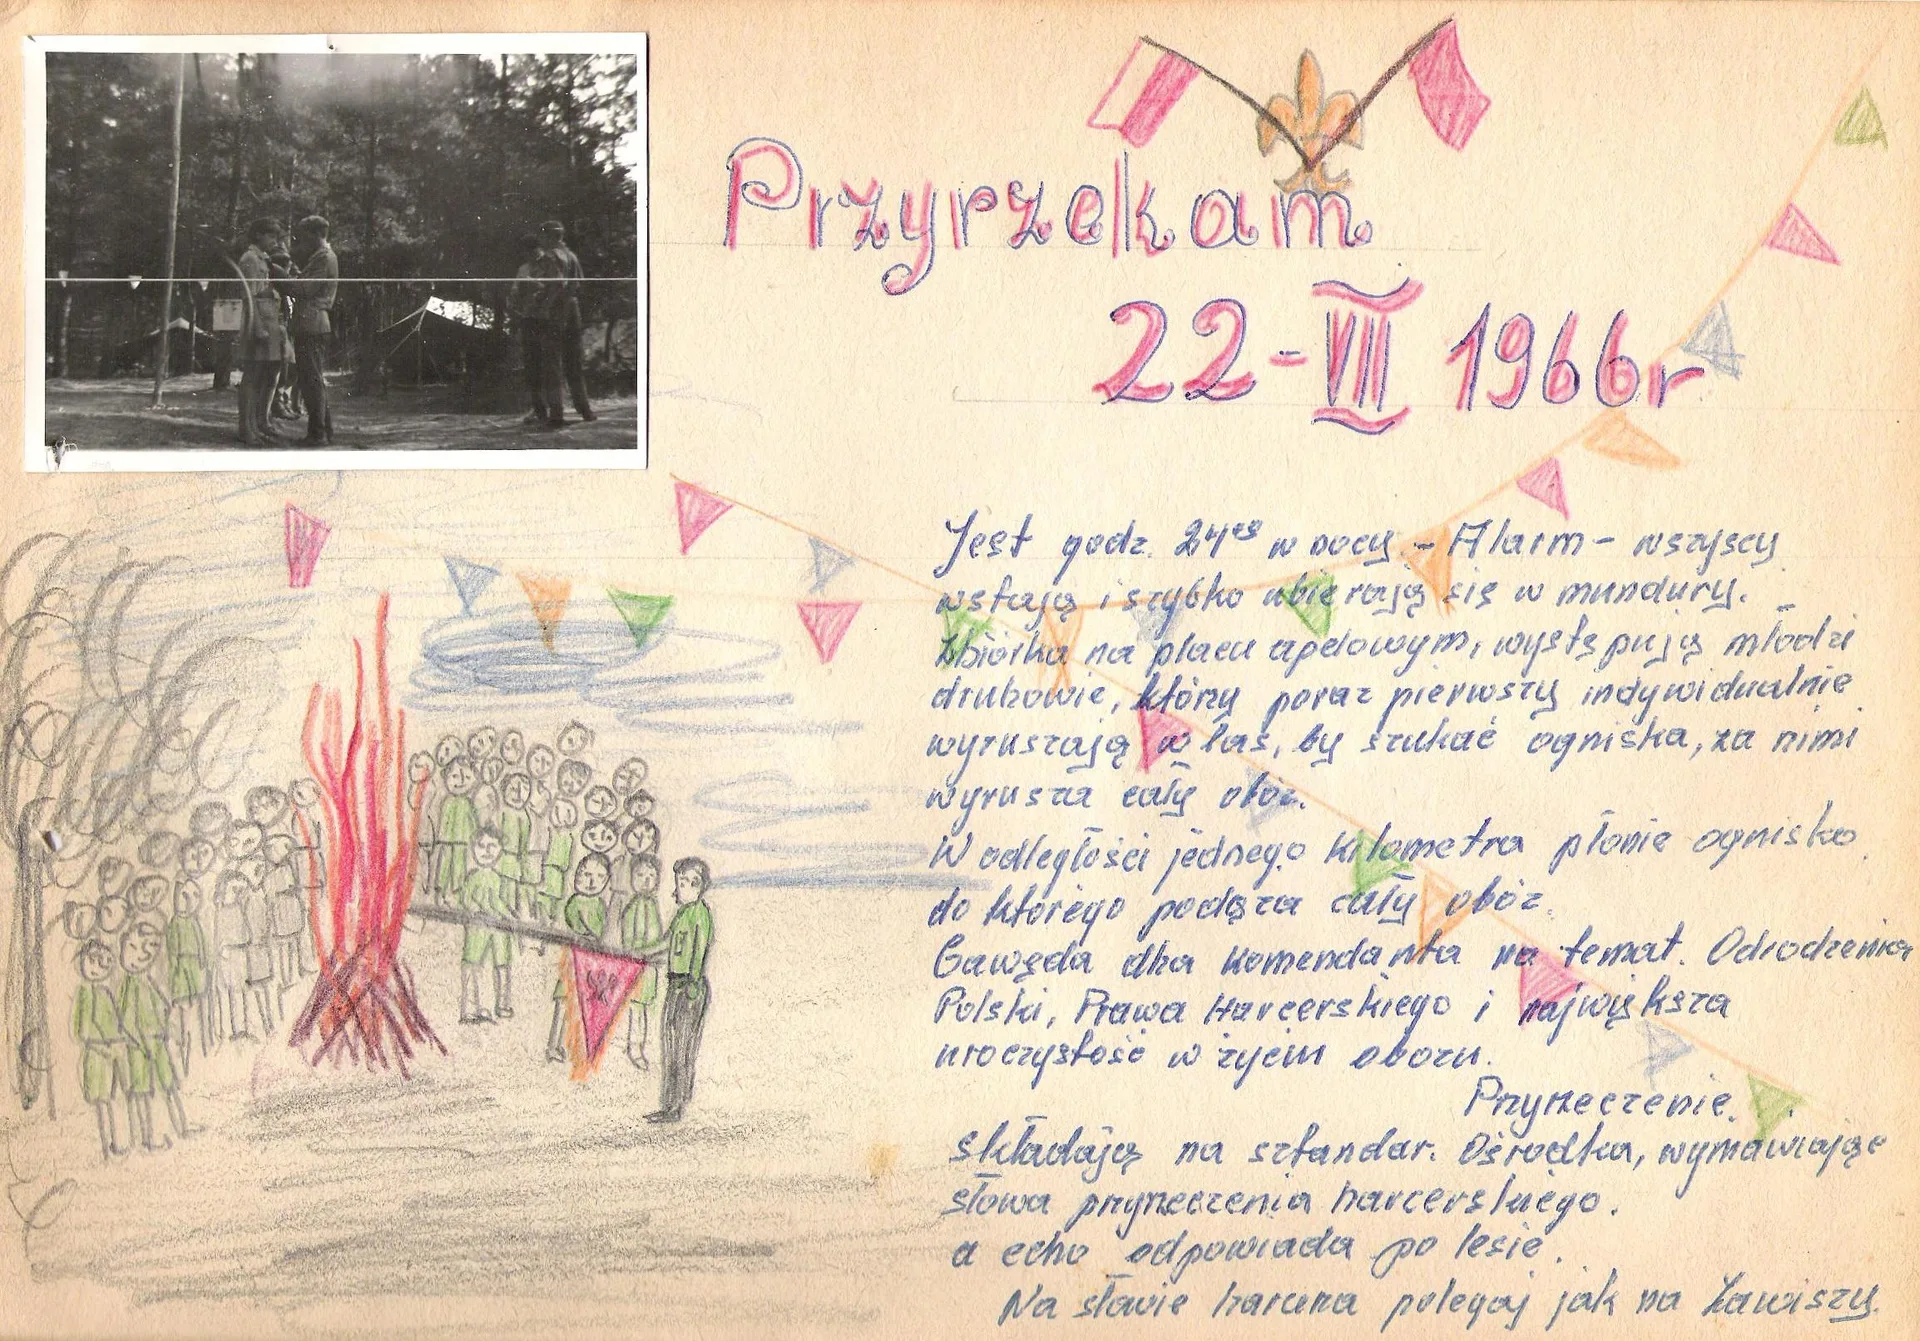 Przyrzekam
22-VII 1966r
Jest godz. 24es w nocy - Alarm - wszyscy
wstają i szybko ubierają się w mundury.
Zbiórka na placu apelowym, występują młodzi
druhowie, którzy poraz pierwszy indywidualnie
wyruszają w las, by szukać ogniska, za nimi
wyrusza cały obóz.
W odległości jednego kilometra płonie ognisko
do którego podąża cały obóz.
Gawęda dha Komendanta na temat. Odrodzenia
Polski, Prawa Harcerskiego i największa
uroczystość w życiu obozu.
Przyrzeczenie.
Składają na sztandar. Ośrodka, wymawiając
słowa przyrzeczenia harcerskiego.
a echo odpowiada po lesie.
Na słowie harcerza polegaj jak na Zawiszy.